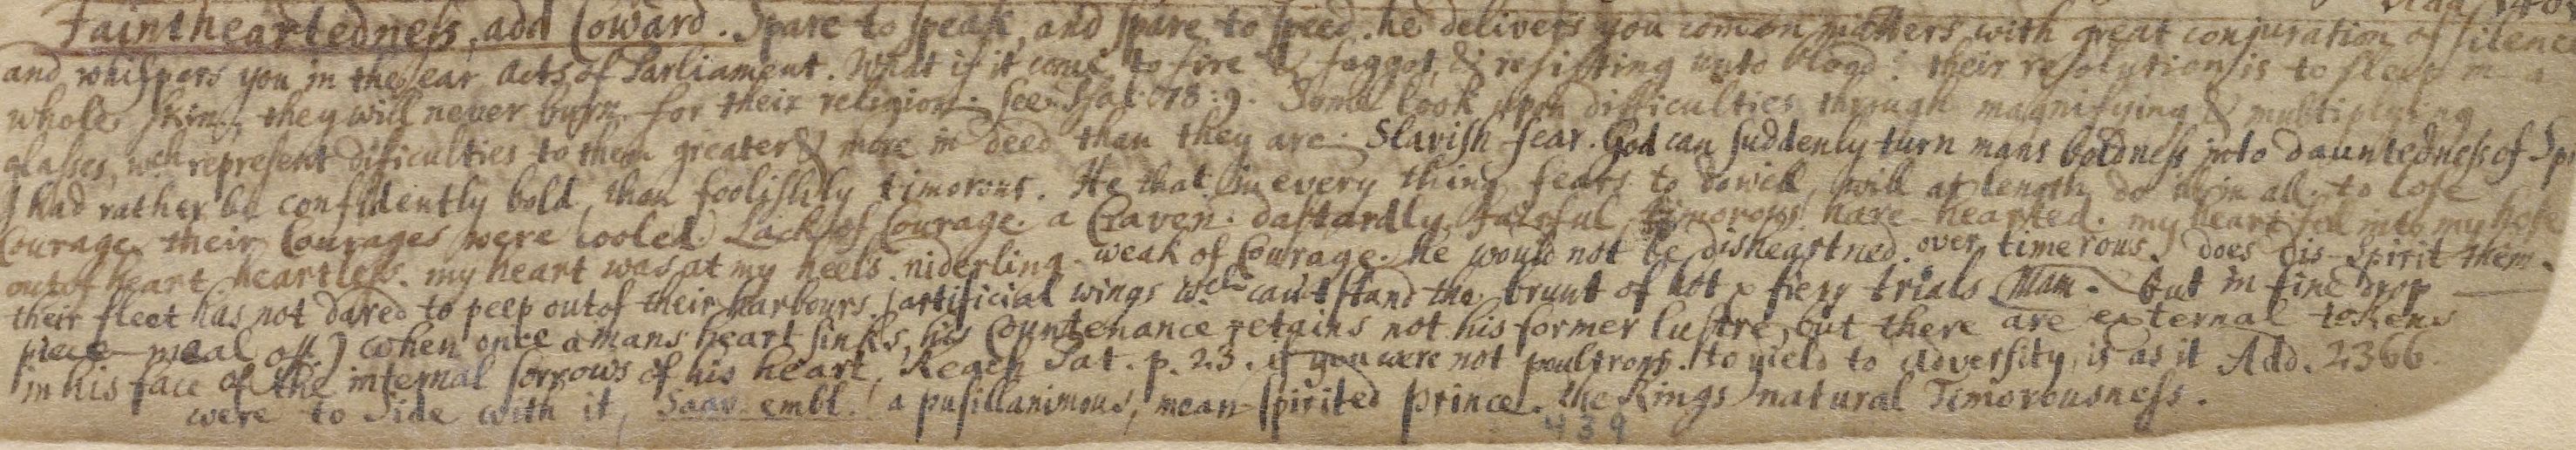 Faintheartedness, add Coward. Spare to speak, and spare to speed. he delivers you comon matters with great conjuration of silence
and whispers you in the ear Acts of Parliament. What if it come to fire & faggot, & resisting unto blood: their resolution is to sleep in a
whole skin, they will never burn for their religion. see Psal: 78:9. Some look upon difficulties through magnifying & multiplying
glasses, wch represent dificulties to them greater & more in deed than they are. Slavish fear. God can suddenly turn mans boldness into dauntedness of Sp
I had rather be confidently bold, than foolishly timorous. He that in every thing fears to dowell, will at length do ill in all. to lose
Courage. their Courages were cooled. Lack of Courage. a Craven. dastardly, fearful, timorous, hare-hearted. my heart fell into my hose
out of heart heartless. my heart was at my heels. niderling. weak of Courage. he would not be disheartned. over timerous. does dis-spirit them.
their fleet has not dared to peep out of their harbours. (artificial wings wch can't stand the brunt of hot & fiery trials Man. but in fine drop
piece-meal off.) when once a mans heart sinks, his Countenance retains not his former lustre, but there are external tokens
in his face of the internal sorrows of his heart, Keach Sat. p. 23. if you were not poultrons. to yield to Adversity, is as it Add. 2366
were to side with it, Saav. embl. a pusillanimous, mean-spirited prince. the Kings natural Timorousness.
439